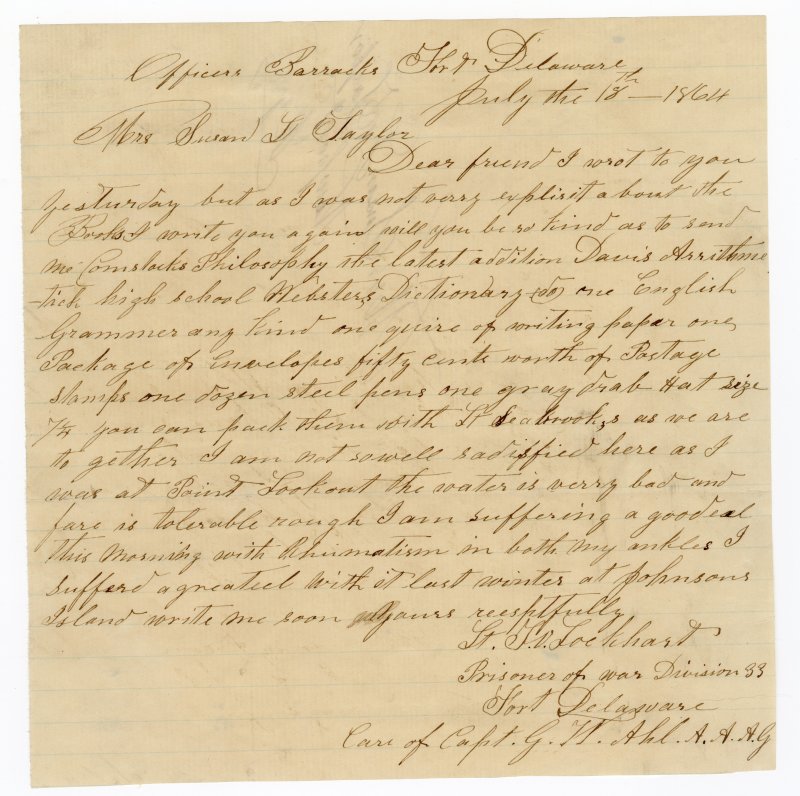 Officers Barracks Fort Delaware
July the 18th — 1864
Mrs Susan L Taylor
Dear friend I wrot to you
yesturday but as I was not verry explisit about the
Books I write you again will you be so kind as to send
me Comstocks Philosophy the latest addition Davis Arrithme
-tick high school Websters Dictionary (do) one English
Grammer any kind one quire of writing paper one
Package of Envelopes fifty cents worth of Postage
stamps one dozen steel pens one gray drab Hat size
7¼ you can pack them with Lt Seabrook,s as we are
to gether I am not sowell sadisfied here as I
was at Point Lookout the water is verry bad and
fare is tolerable rough I am suffering a goodeal
this morning with Rhumatism in both my ankles I
sufferd a greateel with it last winter at Johnsons
Island write me soon yours reesptfully
Lt. T. D. Lockhart
Prisoner of war Division 33
Fort Delaware
Care of Capt. G. W. Ahl. A. A. A. G